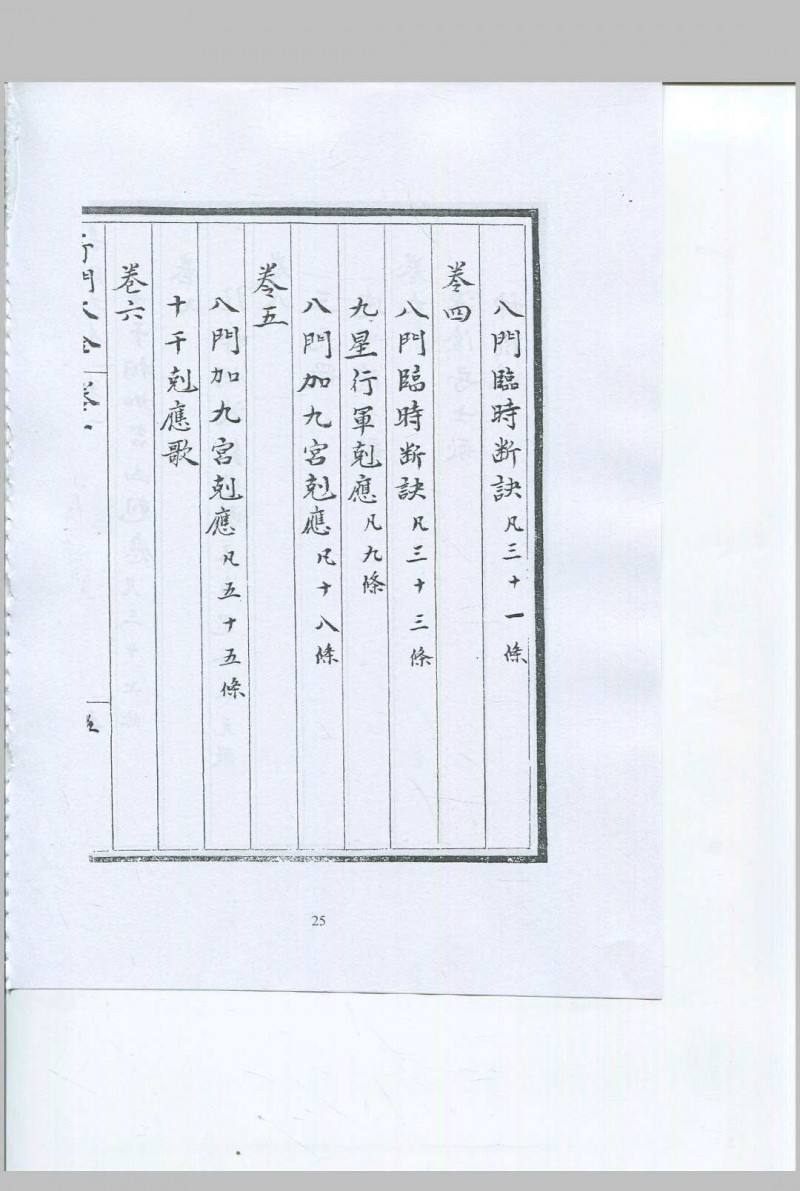 八門臨時断訣凡三十一條
卷四
八門臨時断訣凡三十三條
九星行軍剋應凡九條
八門加九宮剋應凡十八條
卷五
八門加九宮剋應凡五十五條
十干剋應歌
卷六
門大全 卷
25